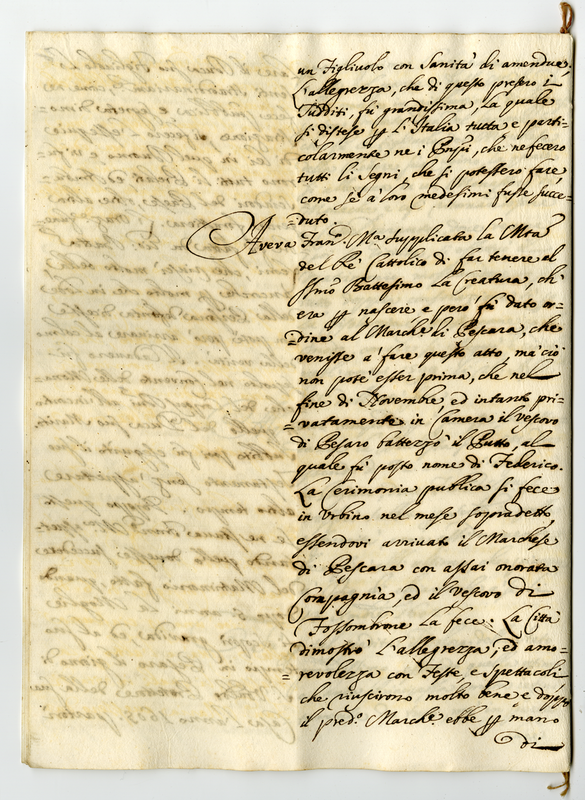 un Figlivolo con Sanità di amendue.
L'allegrezza, che di questo presero i
Sudditi, fù grandissima, La quale
si distese p L'Italia tutta e parti-
colarmente ne i Paesi, che ne fecero
tutti li segni, che si potessero fare
come se à loro medesimi fusse succe-
=duto.
Avera Fran.º Mª supplicata la Mtà
del Rè Cattolico di far tenere al
Ssmo Battesimo La Creatura, ch'
era p nascere e però fù dato or-
=dine al March.e di Pescara, che
venisse a fare questo atto, ma ciò
non potè esser prima, che nel
fine di Novembre ed intanto pri-
=vatamente in Camera il vescovo
di Pesaro battezzò il Putto, al
quale fù posto nome di Federico.
La Cerimonia publica si fece
in Urbino nel mese sopradetto,
essendovi arrivato il Marchese
di Pescara con assai onorata
Compagnia, ed il vescovo di
Fossombrone La fece. La Città
dimostrò L'allegrezza, ed amo-
=revolezza con Feste, e Spettacoli
che riuscirono molto bene e doppo
il pred.º March.e ebbe p mano
di